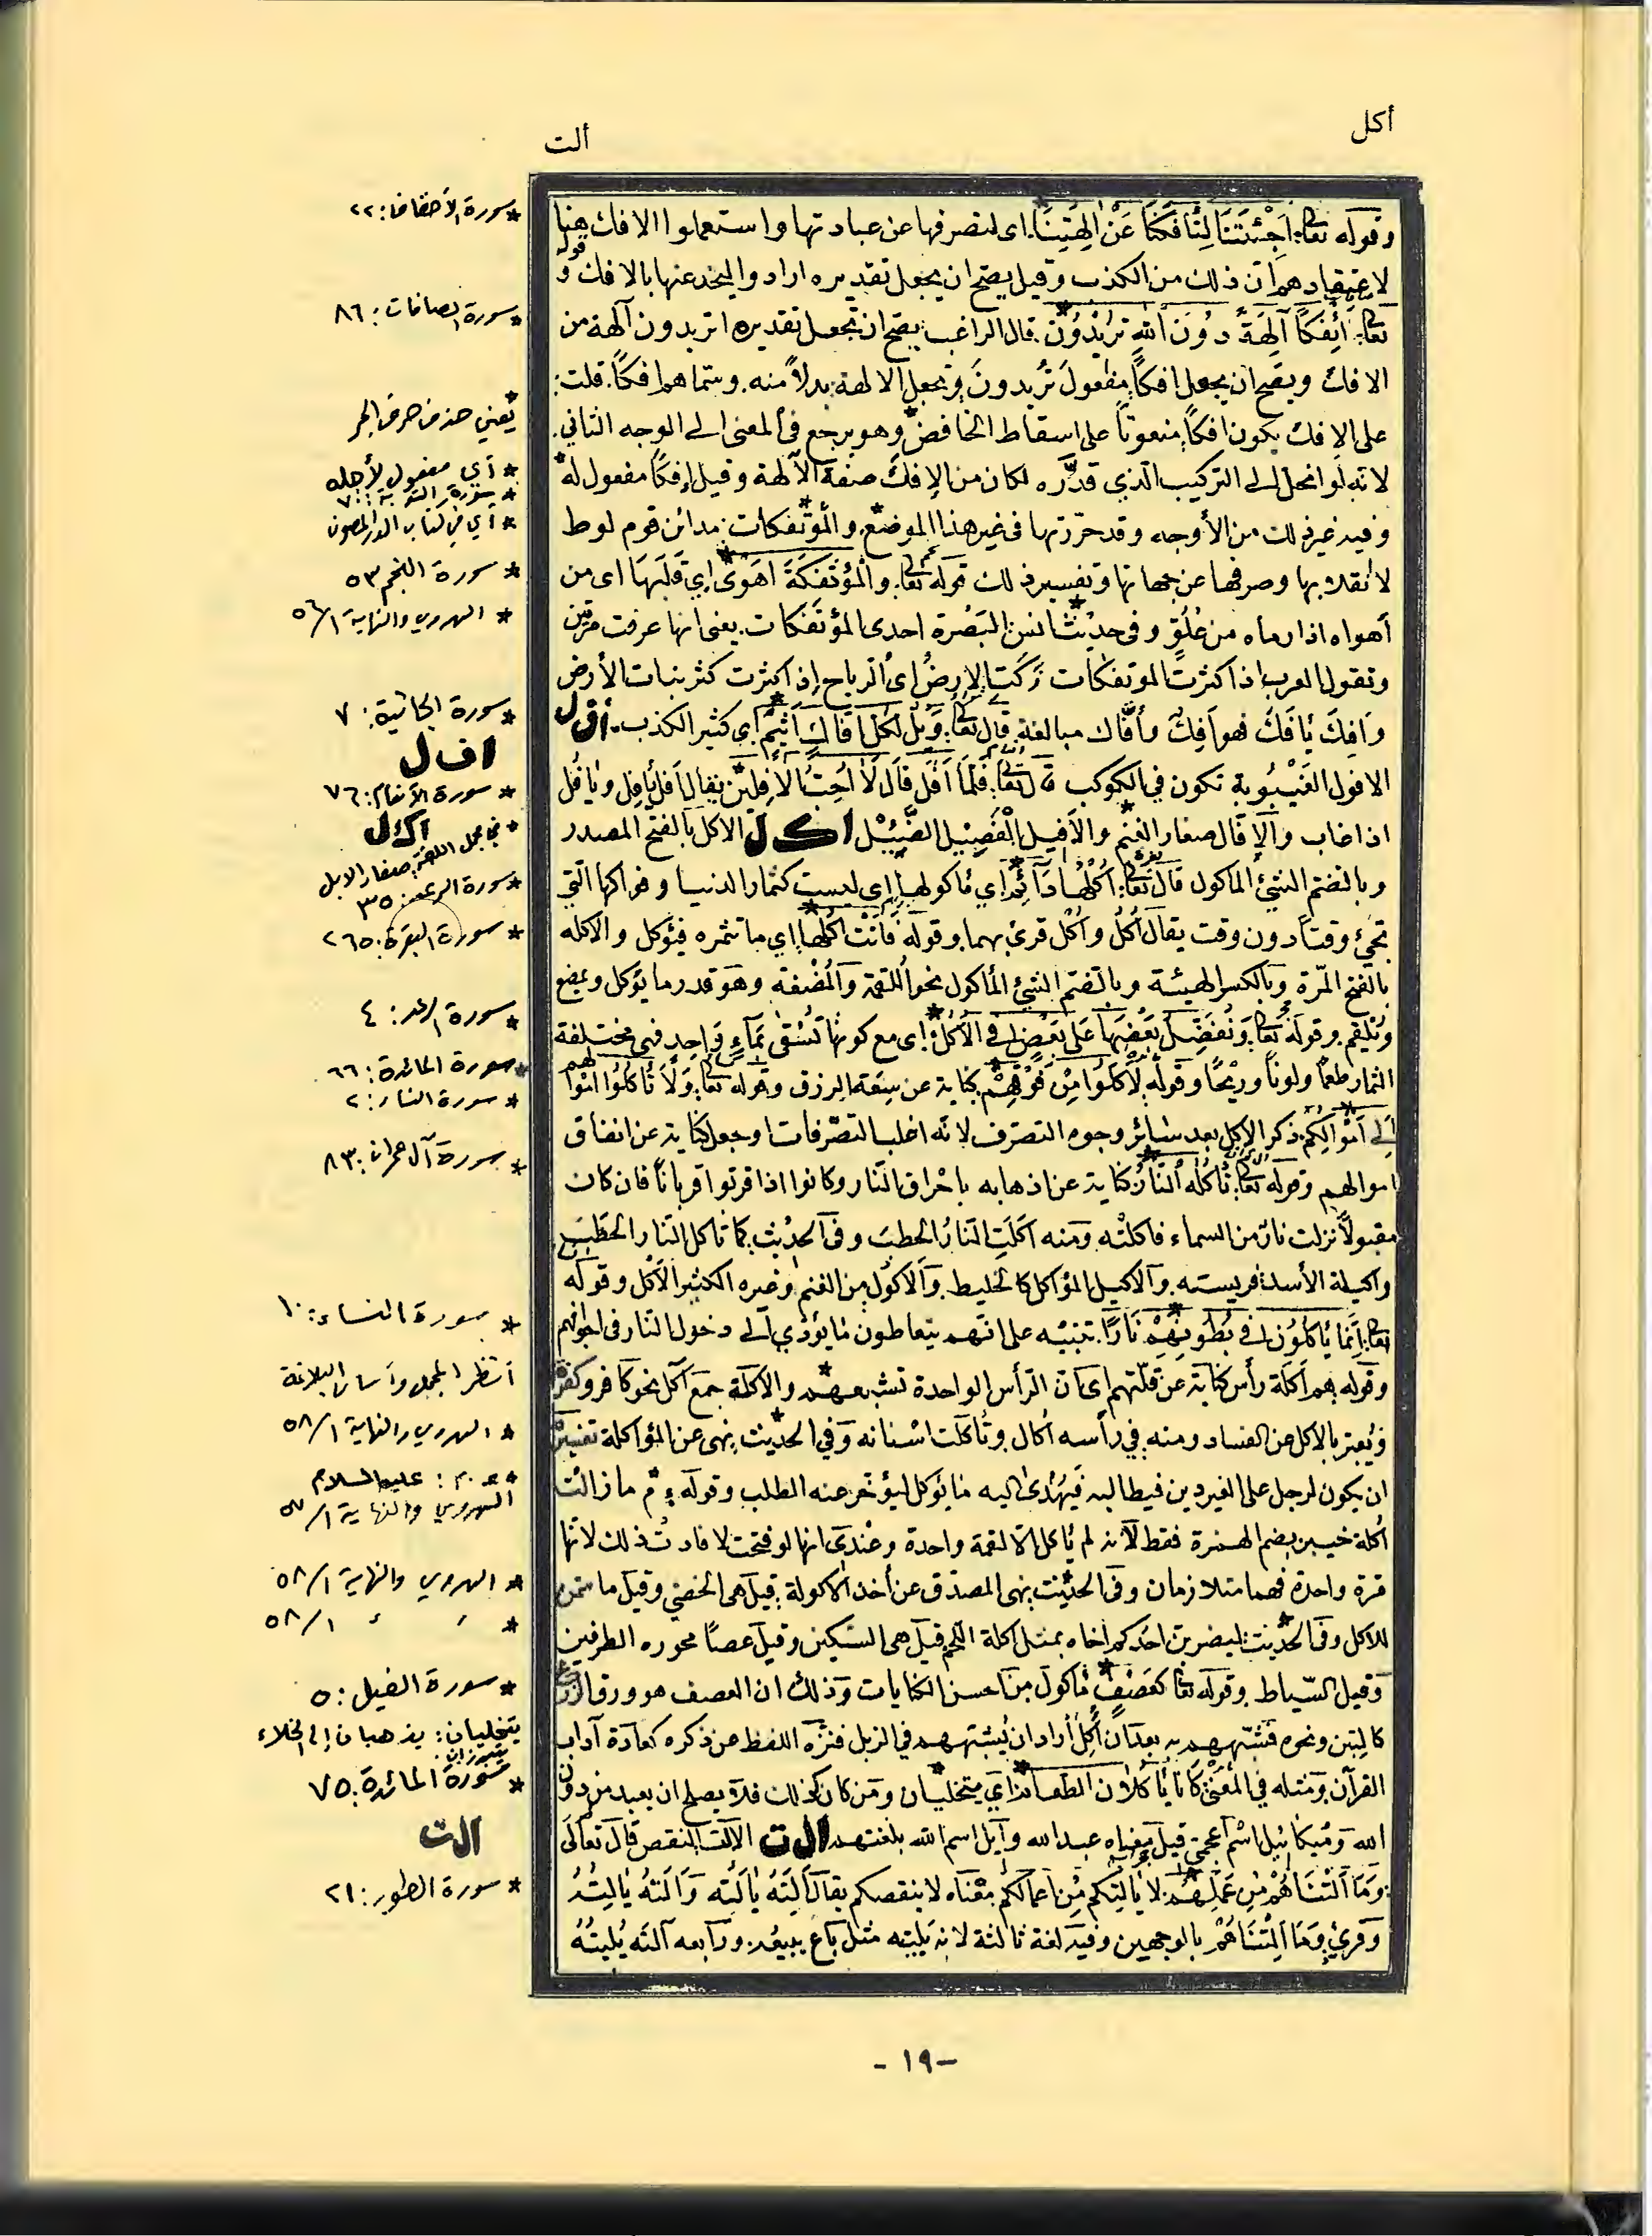 أكل
ألت
وقوله تعا: اَجْئتَنَا لِتَأفِكَنَا عَنْ اٰلِهَتِنَا. اى لتصرفها عن عبادتها واستعملوا الافك هنا
لاعتقادهم ان ذلك من الكذب وقيل يصح ان يجعل تقديره ارادوا ليخدعنها بالافك و قوله
تعا: أئِفكاً آلِهَةً دوُنَ اللهِ تريْدُوْنَ. قال الراغب يصح ان تجعل تقديره اتريدون آلهة من
الافك ويصح ان يجعل افكاً مفعول تُريدونَ وتجعل الالهة بدلاً منه. وسماهم افكاً. قلت:
على الافك يكون افكاً منصوباً على اسقاط الخافض وهو يرجع في المعنى الى الوجه الثاني.
لانه لو انحل الى التركيب الذي قدّره لكان من الإفك صفة الآلهة وقيل إفكاً مفعول له
وفيه غير ذلك من الأوجه وقد حررتها في غير هذا الموضع. والمؤتفكات: مدائن قوم لوط
لانقلابها وصرفها عن جهاتها وتفسير ذلك قوله تعا. والْمؤتَفكَةَ اَهَوٰى اي قلَبهَا اى من
أهواه اذا رماه من عُلُوٍّ وفي حديث انس: البَصْرة احدى المؤتَفكات. يعنى انها غرقت مرّتين
وتقول العرب اذا كثرت الموتفكات زكت الارضُ اى الرياح اذا كثرت كثر نبات الأرض
وَأفِكَ يأفَكُ فهو اَفِكٌ وأفّاك مبالغة. قال تعا: وَيْل لكُلّ اَفّاكٍ اَثِيْمٍ اي كثير الكذب. أفل
الافول الغَيْبُوبة تكون في الكوكب قال تعا: فَلَمّا اَفَلَ قَال لَا اُحِبُّ الْاٰفِلِيْنَ يقال أفل يأفِل ويأفُل
اذا غاب والإفال صغار الغنم والأفيل الْفَصِيْل الضَّئِيْل اكل الاكل بالفتح المصدر
وبالضم الشئ المأكول قال تعا: اُكُلُهَا دَآئِمٌ اي مأكولها اي ليست كثمار الدنيا وفواكهها التي
تجئ وقتاً دون وقت يقال اُكْلٌ واُكُل قرئ بهما. وقوله فَاٰتَتْ اُكُلَهَا اي ما تثمره فيؤكل والاكله
بالفتح المرّة وبالكسر الهيئة وبالضم الشئ المأكول نحو اللقمة والمُضْغة وهو قدر ما يؤكل ويمضغ
ويلتقم. وقوله تعا: وَنُفَضِّلُ بَعْضَهَا عَلى بَعْضٍ في الْاُكُلِ اى مع كونها تُسْقٰى بمَآءٍ وَاحِدٍ فهي مختلفة
الثمار طعماً ولوناً وريْحًا وقوله لَاَكَلُوْا مِنْ فَوْقِهِمْ كناية عن سعة الرزق وقوله تعا: وَلَا تَأكُلُوْا اَمْوَالهم
اِلى اَمْوَالِكُمْ. ذكر الاكل بعد سائر وجوه التصرف لانه اغلب التصرفات او جعل كناية عن انفاق
اموالهم وقوله تعا: تَأكُلُه النّارُ كناية عن اذهابه باحْراق النّار وكانوا اذا قربوا قرباناً فان كان
مقبولاً نزلت نار من السماء فاكلتْه. ومنه اَكَلَتِ النارُ الحطبَ وفي الحديث: كما تأكل النّار الحَطَبَ
واكيلة الأسد: فريسته. والاكيل المؤاكل كالخليط. والاكول من الغنم وغيره الكثير الأكل وقوله
تعا: اِنّمَا يَأكُلُوْنَ في بُطُونِهِمْ نَارًا. تنبيه على انهم يتعاطون ما يؤدي الى دخول النار في اجوافهم
وقوله هم اَكَلَة رأس كناية عن قلّتهم اى ان الرأس الواحدة تشبعهم والاكلة جمع آكل نحو كافر وكفرة
ويُعبّر بالاكل عن الفساد ومنه: في رأسه اُكال وتأكلت اسنانه وفي الحديث: نهى عن المؤاكلة تفسيره
ان يكون لرجل على الغير دين فيطالبه فيَهُدى اليه ما يؤكل ليؤخر عنه الطلب وقوله ع م ما زالت
اُكلة خيبر بضم الهمزة فقط لانه لم يأكل الا لقمة واحدة وعندى انها لو فتحت لافادت ذلك لانها
مرة واحدة فهما متلازمان وفي الحديث: نهى المصدّق عن أخذ الاكولة. قيل هى الخصي وقيل ما سمن
للاكل وفي الحديث: ليضربن احدكم اخاه بمثل اكلة اللحم قيل هي السكين وقيل عصًا محوره الطرفين
وقيل السّياط. وقوله تعا كَعَصْفٍ مَأكُولٍ من احسن الكنايات وذلك ان العصف هو ورق الزرع
كالتبن ونحوه فشبّههم به بعد ان اُكل أراد ان يُشبههم في الزبل فنزّه اللفظ عن ذكره كعادة آداب
القرآن. ومثله في المعنى: كَانَا يَأكُلَانِ الطّعَامَ اي يتخليان ومن كان كذلك فلا يصلح ان يعبد من دون
الله وميكائيل اسْم اعجمي. قيل معناه عبد الله وآيل اسم الله بلغتهم الت الالت النقص قال تعالَى
وَمَا أَلَتْنَاهُمْ مِنْ عَمَلِهِم. لا يَأْلِتكم مِن اعمالكم معْناه لا ينقصكم يقال اَلَتَهُ يأْلَته وَاَلَتهُ يَأْلِتُهُ
وقرئ وَمَا اَلِتْنَاهُمْ بالوجهين وفيه لغة ثالثة لاته يَلِيته مثل باع يبيعُه. ورابعه آلته يُلِيتُهُ
* سورة الأحقاف: ٢٢
* سورة الصافات: ٨٦
* يعني حذف حرف الجر
* أي مفعول لأجله
* سورة التوبة: ٧٠
* أي في كتاب الدر المصون
* سورة النجم ٥٣
* الهروي والنهاية ٥٦/١
* سورة الجاثية: ٧
افل
* سورة الأنعام: ٧٦
اكل
* في مجمل اللغة: صغار الابل
* سورة الرعد: ٣٥
* سورة البقرة: ٢٦٥
* سورة الرعد: ٤
* سورة المائدة: ٦٦
* سورة النساء: ٢
* سورة آل عمران: ١٨٣
* سورة النساء: ١٠
أنظر المجمل وأساس البلاغة
* الهروي والنهاية ٥٨/١
* ع.م: عليه السلام
الهروي والنهاية ٥٧/١
* الهروي والنهاية ٥٨/١
* ٥٨/١
* سورة الفيل: ٥
يتخليان: يذهبان إلى الخلاء
يتبرزان.
* سورة المائدة: ٧٥
الت
* سورة الطور: ٢١
- ١٩ -